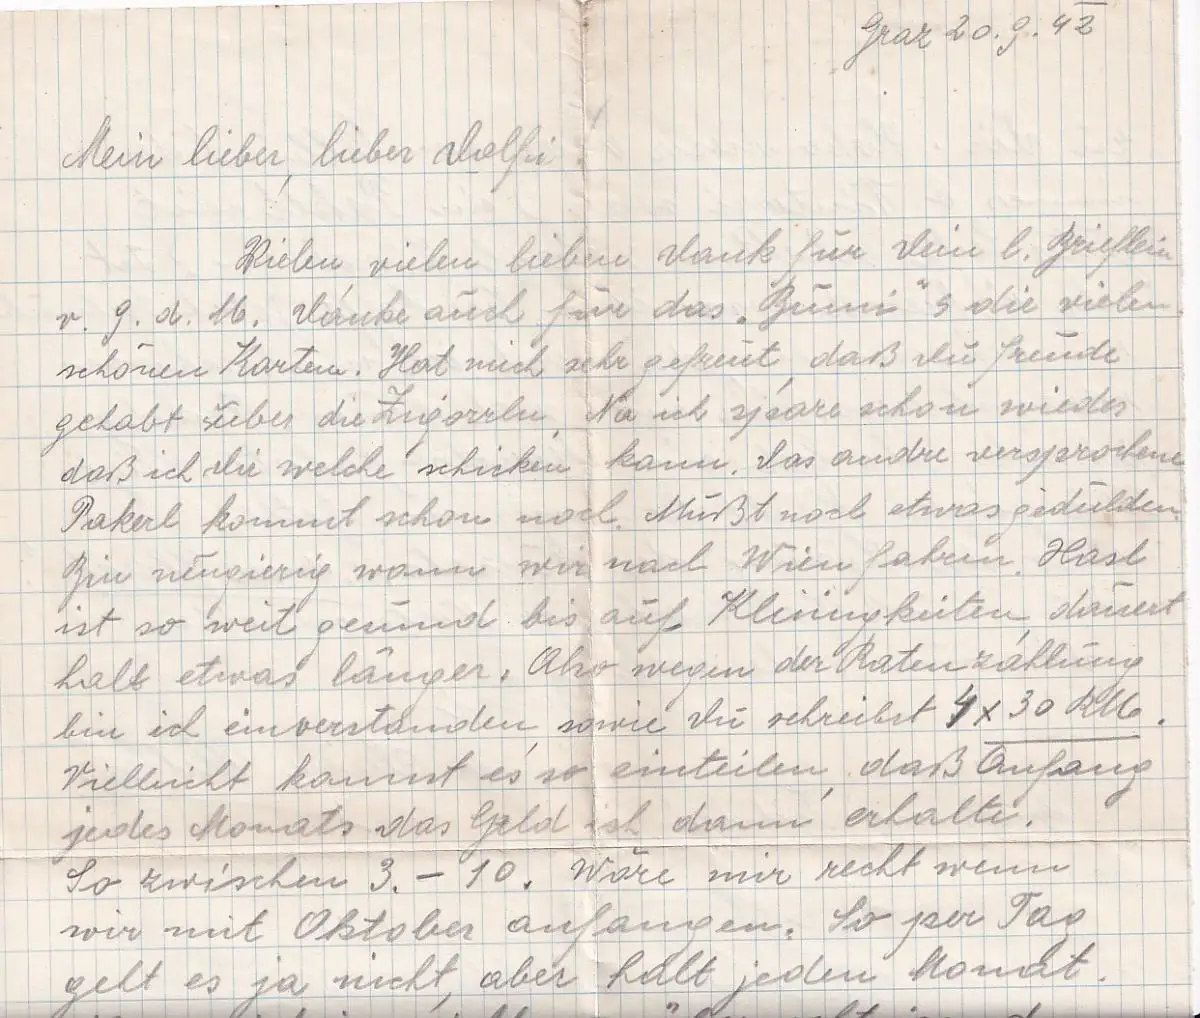 Graz 20.9.42
Mein lieber, lieber Dolfi!
Vielen, vielen lieben Dank für Dein l. Brieflein
v. 9. d. M. Danke auch für das „Bumi" u die vielen
schönen Karten. Hat mich sehr gefreut, daß Du Freude
gehabt über die Zigarrln. Na ich spare schon wieder
daß ich Die welche schicken kann. Das andre versprochene
Pakerl kommt schon noch. Mußt noch etwas gedulden.
Bin neugierig wann wir nach Wien fahren. Hasl
ist so weit gesund bis auf Kleinigkeiten, dauert
halt etwas länger. Also wegen der Ratenzahlung
bin ich einverstanden, sowie Du schreibst 4 x 30 RM.
Vielleicht kannst es so einteilen, daß Anfang
jedes Monats das Geld ich dann erhalte.
So zwischen 3. – 10. Wäre mir recht wenn
wir mit Oktober anfangen. So per Tag
geht es ja nicht, aber halt jeden Monat.